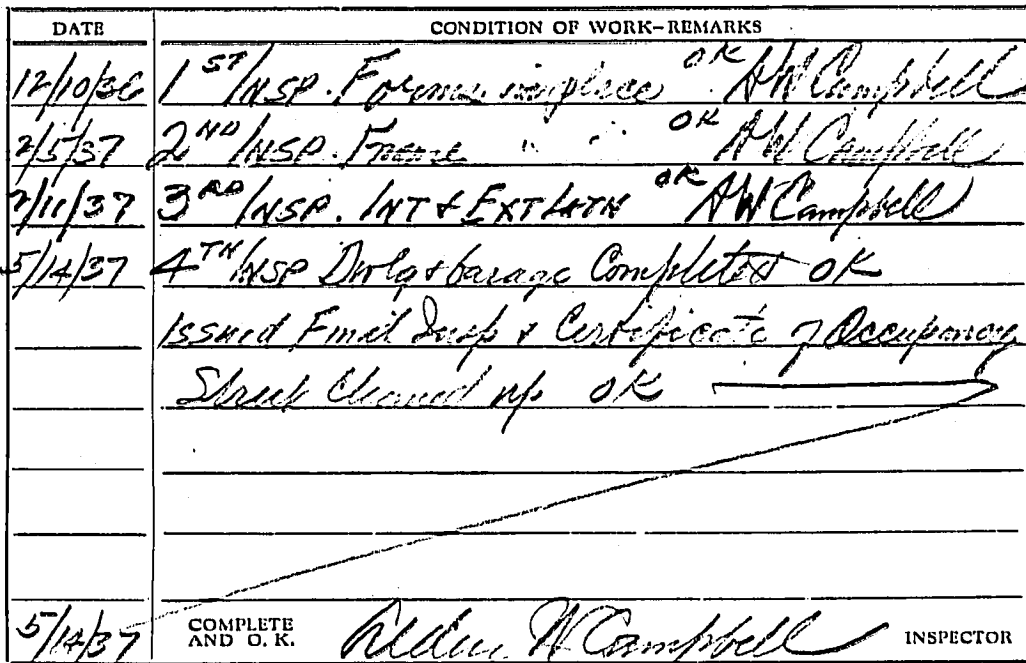 DATE CONDITION OF WORK-REMARKS
12/10/36 1ST INSP. Forms in place OK AW Campbell
2/5/37 2ND INSP. Frame " " OK AW Campbell
2/11/37 3RD INSP. INT & EXT LATH OK AW Campbell
5/14/37 4TH INSP Dwlg & Garage Completed OK
Issued Final Insp & Certificate of Occupancy
Street Cleaned up OK
5/14/37 COMPLETE AND O.K. W Campbell INSPECTOR